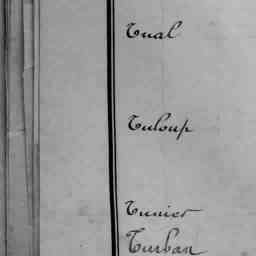 Tual
Tuloup
Tunier
Turban